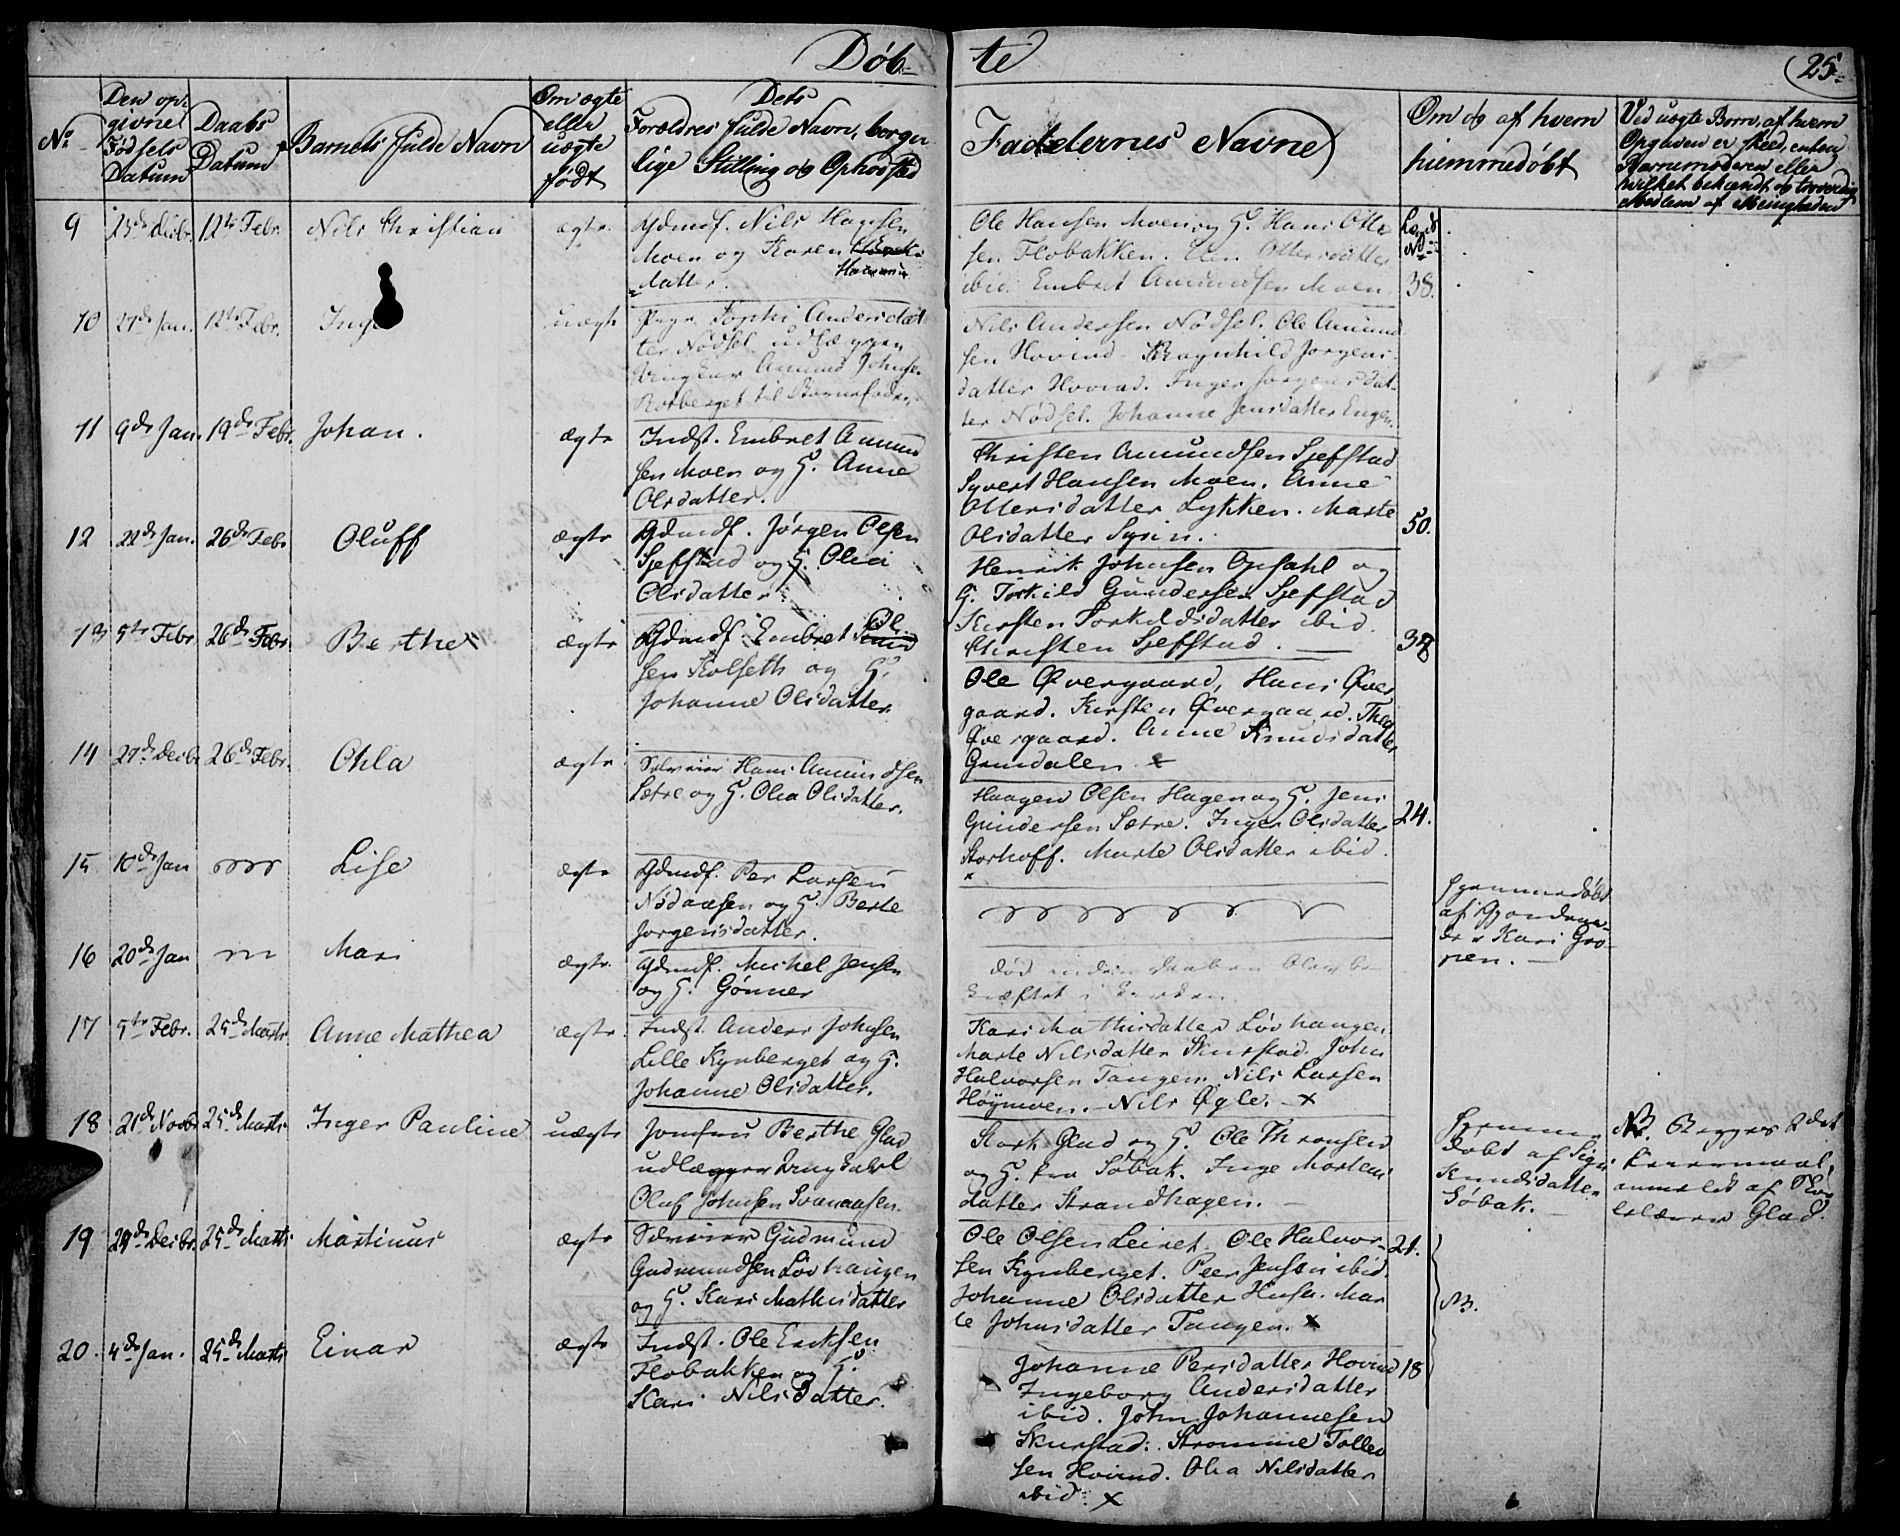 Døb-
te
25
No
Den op-
givne
Fødsels
Datum
Daabs
Datum
Barnets fulde Navn
Om ægte
eller
uægte
født
Dets
Forældres fulde Navn, borger
lige Stilling og Opholdsted
Faddernes Navne
Om og af hvem
hiemmedøbt
Ved uægte Børn, af hvem
Opgaven er skeed, enten
Barnemoderen eller
hvilket bekiendt og troværdig
Medlem af Menigheden
9 23de Decbr. 12te Febr. Nils Christian ægte
Gdmdf. Nils Hansen
Moen og Karen
datter.
Ole Hansen Moen og G. Hans Otter
sen Flobakken. Ottersdatter
ibid. Embret Amundsen Moen.
38.
10 27de Jan. 12te Febr. Inge uægte
Pige Sophi Andersdat
ter Nødsel udlægger
Ungkar Amund Johnsen
Rotberget til Barnefader.
Nils Andersen Nødsel. Ole Amund
sen Hovind. Ragnhild Jørgens
datter Hovind. Inger Jørgensdat
ter Nødsel. Johanne Jensdatter Engen.
11 9de Jan. 19de Febr. Johan. ægte
Indst. Embret Amund
sen Moen og G. Anne
Olsdatter.
Christen Amundsen Sjefstad
Syvert Hansen Moen. Anne
Ottersdatter Lykken. Marte
Olsdatter Syrin.
12 22de Jan. 26de Febr Oluff ægte
Gdmdf. Jørgen Olsen
Sjefstad og G. Olea
Olsdatter
50.
Henrik Johnsen Opsahl og
G. Torkild Gundersen Sjefstad
Kirsten Torkildsdatter ibid.
Christen Sjefstad.
13 5te Febr 26de Febr. Berthe ægte
Gdmdf. Embret Ol
sen Kolseth og G.
Johanne Olsdatter
38
Ole Øvergaard, Hans Øver
gaard. Kirsten Øvergaard. Thea
Øvergaard. Anne Knudsdatter
Grundalen x
14 27de Decbr 26de Febr. Ohla ægte
Selveier Hans Amundsen
Sætre og G. Olea Olsdatter.
Haagen Olsen Hagen og G. Jens
Gundersen Sætre. Inger Olsdatter
Storhoff. Marte Olsdatter ibid.
24.
15 10de Jan Lise ægte
Gdmdf. Per Larsen
Nødaasen og G. Berte
Jørgensdatter.
Hjemmedøbt
af
Kari Gro-
nen.
16 20de Jan Mari ægte
Gdmdf. Michel Jensen
og G. Gønner
død
17 5te Febr. 25de Marts Anne Mathea ægte
Indst. Anders Johnsen
Lille Kynberget og G.
Johanne Olsdatter.
Kari Mathisdatter Løvhaugen.
Marte Nilsdatter Skurstad. John
Halvorsen Tangen. Nils Larsen
Høymoen. Nils Øgle. x
18 21de Novbr 25de Marts Inger Pauline uægte
Jomfru Berthe Glad
udlægger Ungkarl
Oluf Johnsen Svenaasen.
Glad og G. Ole Thronsen
og G. fra Søbak. Inge Mortens
datter Strandhagen.
Hjemme
døbt af Sigri
Knudsdatter
Søbak.
NB. Begges 2det
Leiermaal,
anmeldt af
Glad.
19 29de Decbr 25de Marts Martinus ægte
Selveier Gudmund
Gudmundsen Løvhaugen
og G. Kari Mathisdatter
Ole Olsen Leiret. Ole Halvor-
sen Kynberget. Peer Jensen ibid.
Johanne Olsdatter Huse. Mar
te Johnsdatter Tangen. x
21.
NB.
20. 4de Jan. 25de Marts Einar ægte
Indst. Ole Ericksen
Flobakken og G.
Kari Nilsdatter.
Johanne Persdatter Hovind
Ingeborg Andersdatter
ibid. John Johannesen
Skurstad. Stromme Tolle
sen Hovind. Olea Nilsdatter
ibid. x
18